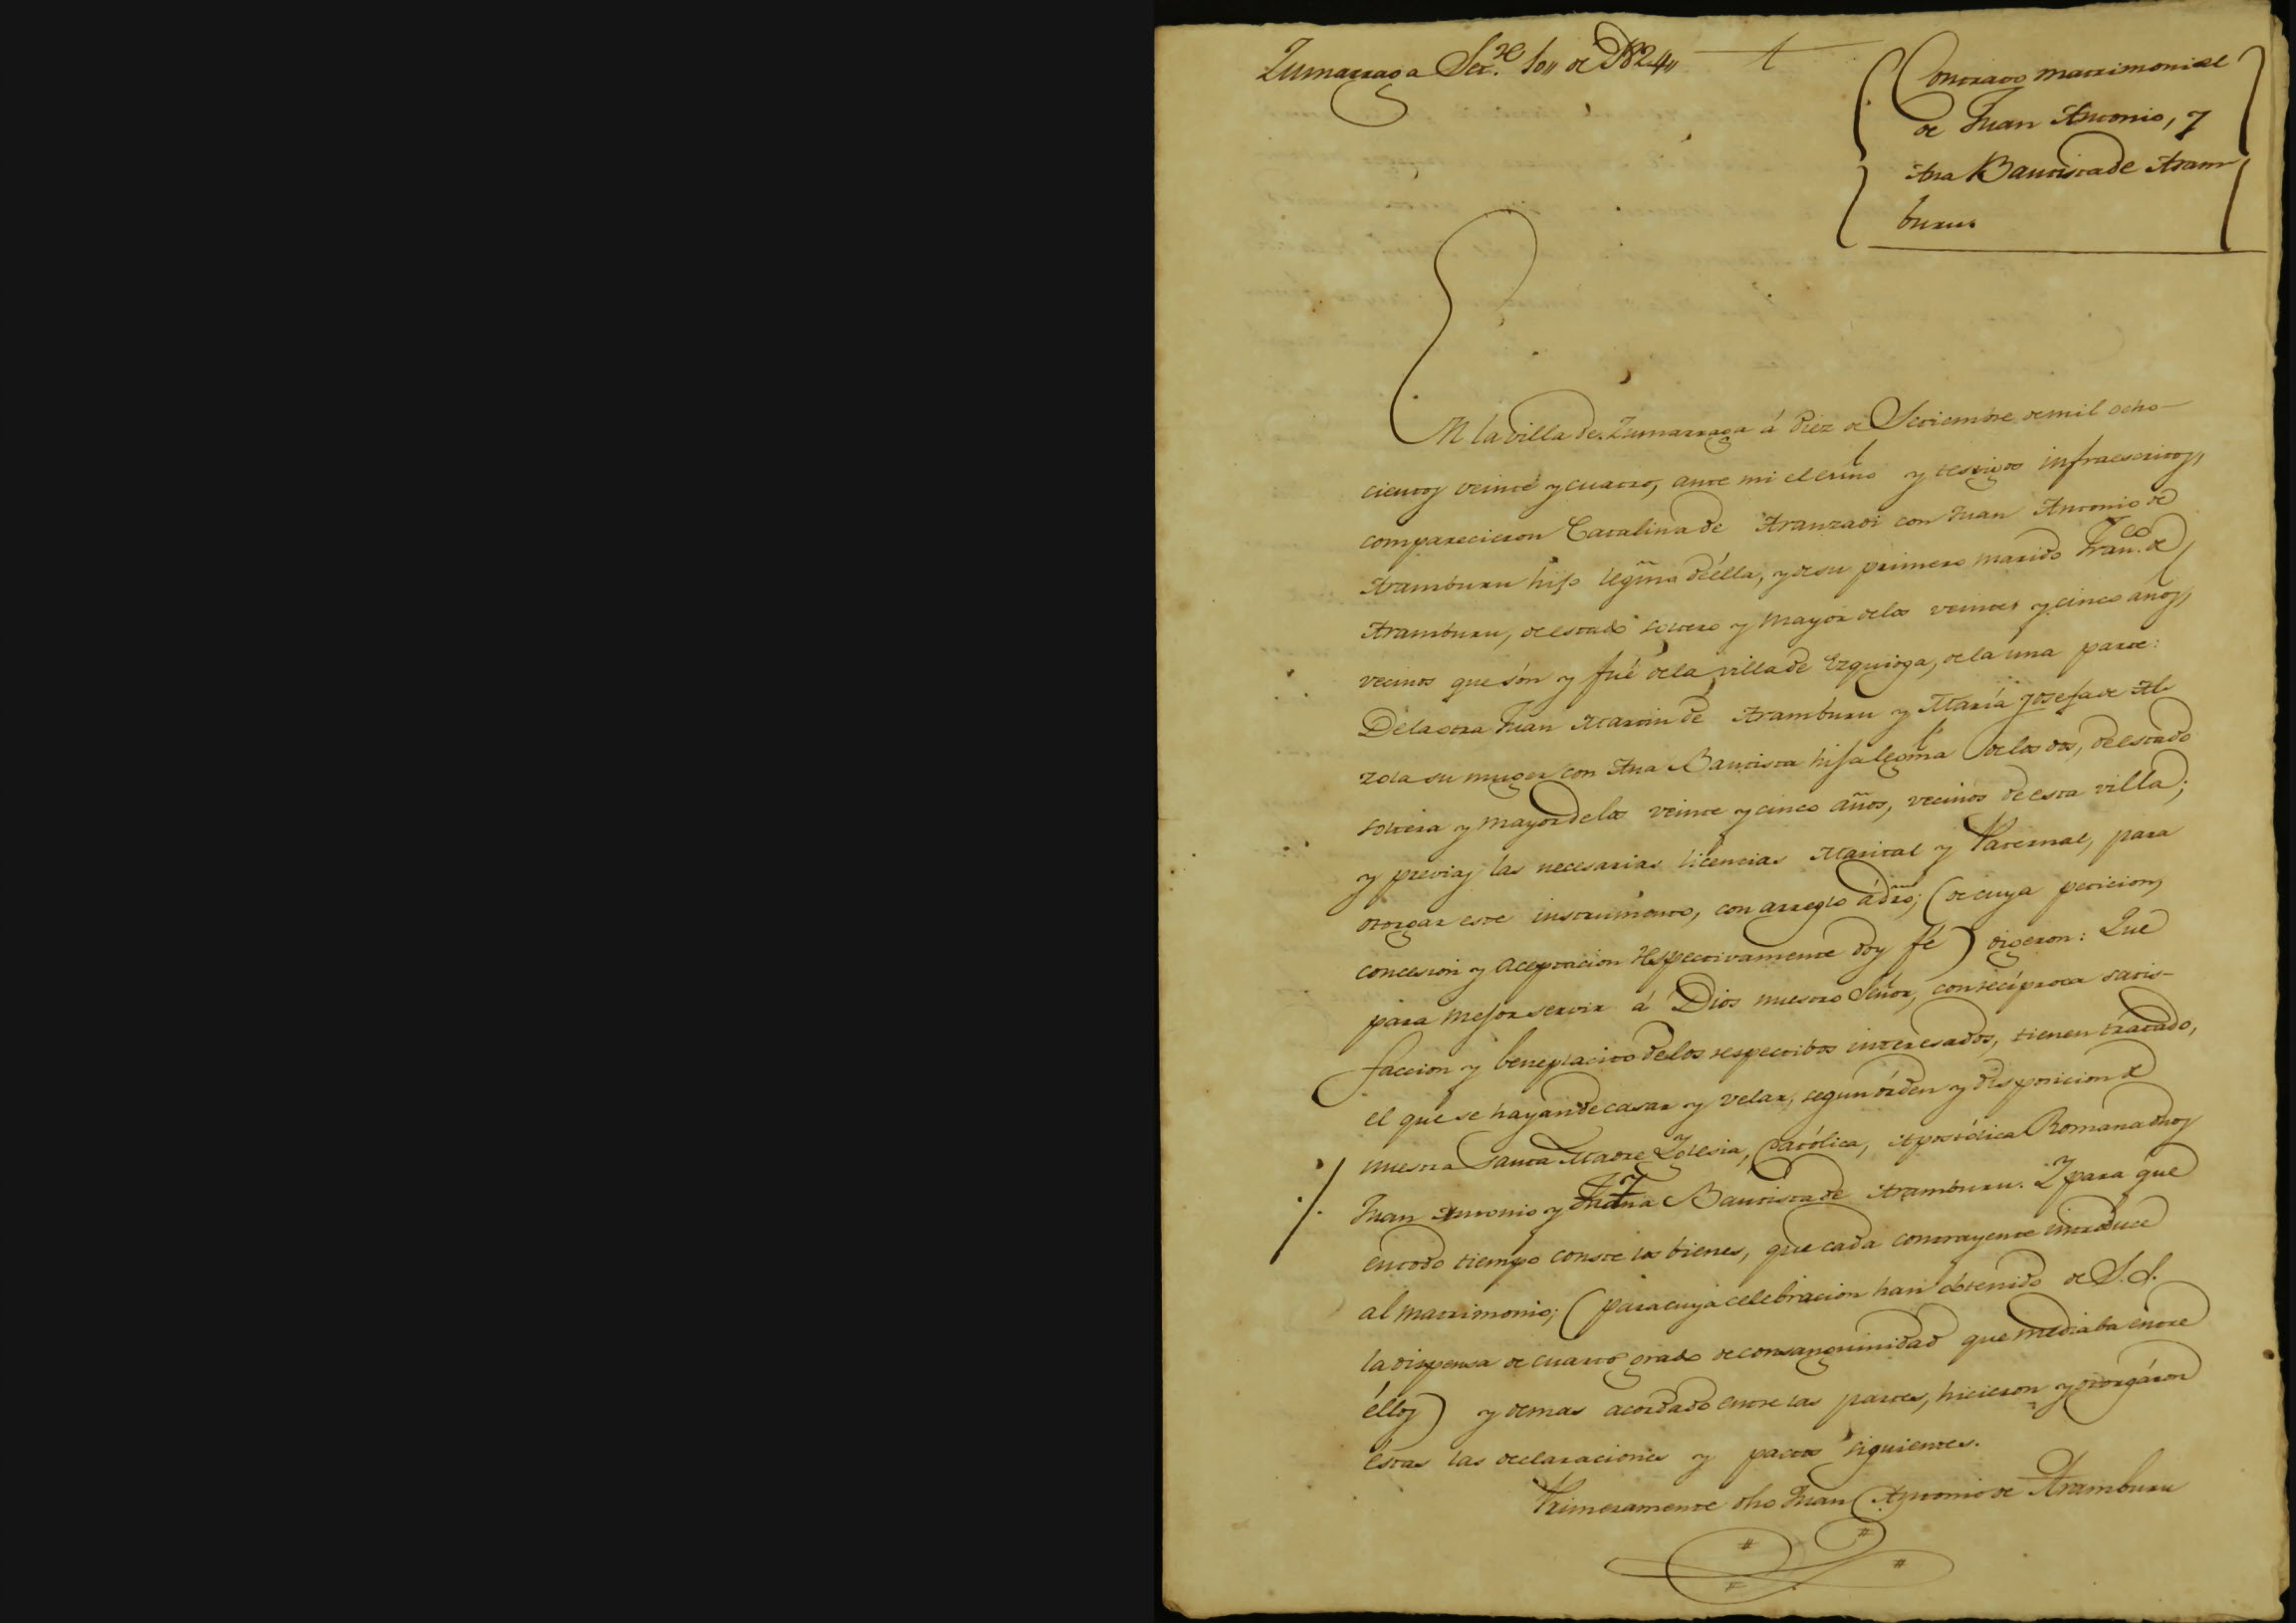 Zumarraga Sec.re 10,, de 1824,,
Contrato matrimonial
de Juan Antonio, y
Ana Bautista de Aram
buru.
En la villa de Zumarraga á diez de Setiembre de mil ocho-
cientos veinte y cuatro, ante mi el esno y testigos infraescritos,
comparecieron Catalina de Aranzadi con Juan Antonio de
Aramburu hijo legmo de élla, y de su primero marido Fran.co de
Aramburu, de estado soltero y mayor de los veinte y cinco años,
vecinos que són y fué de la villa de Ezquioga, de la una parte:
De la otra Juan Martin de Aramburu y María Josefa de Al
zola su muger con Ana Bautista hija legma de los dos, de estado
soltera y mayor de los veinte y cinco años, vecinos de esta villa;
y previas las necesarias licencias Marital y Paternal, para
otorgar este instrumento, con arreglo á dro; (de cuya peticion,
concesion y aceptacion respectivamente doy fé) digeron: Que
para mejor servir á Dios nuestro Señor, con recíproca satis-
faccion y beneplacito de los respectibos interesados, tienen tratado,
el que se hayan de casar y velar, segun órden y disposicion de
nuestra Santa Madre Yglesia, Católica, Apostólica Romana dhos
Juan Antonio y Ana Bautista de Aramburu. Y para que
en todo tiempo conste los bienes, que cada contrayente introduce
al matrimonio; (para cuya celebracion han obtenido de S.S.
la dispensa de cuarto grado de consanguinidad que mediaba entre
éllos) y demas acordado entre las partes, hicieron y otorgáron
estas las declaraciones y pactos siguientes.
Primeramente dho Juan Antonio de Aramburu